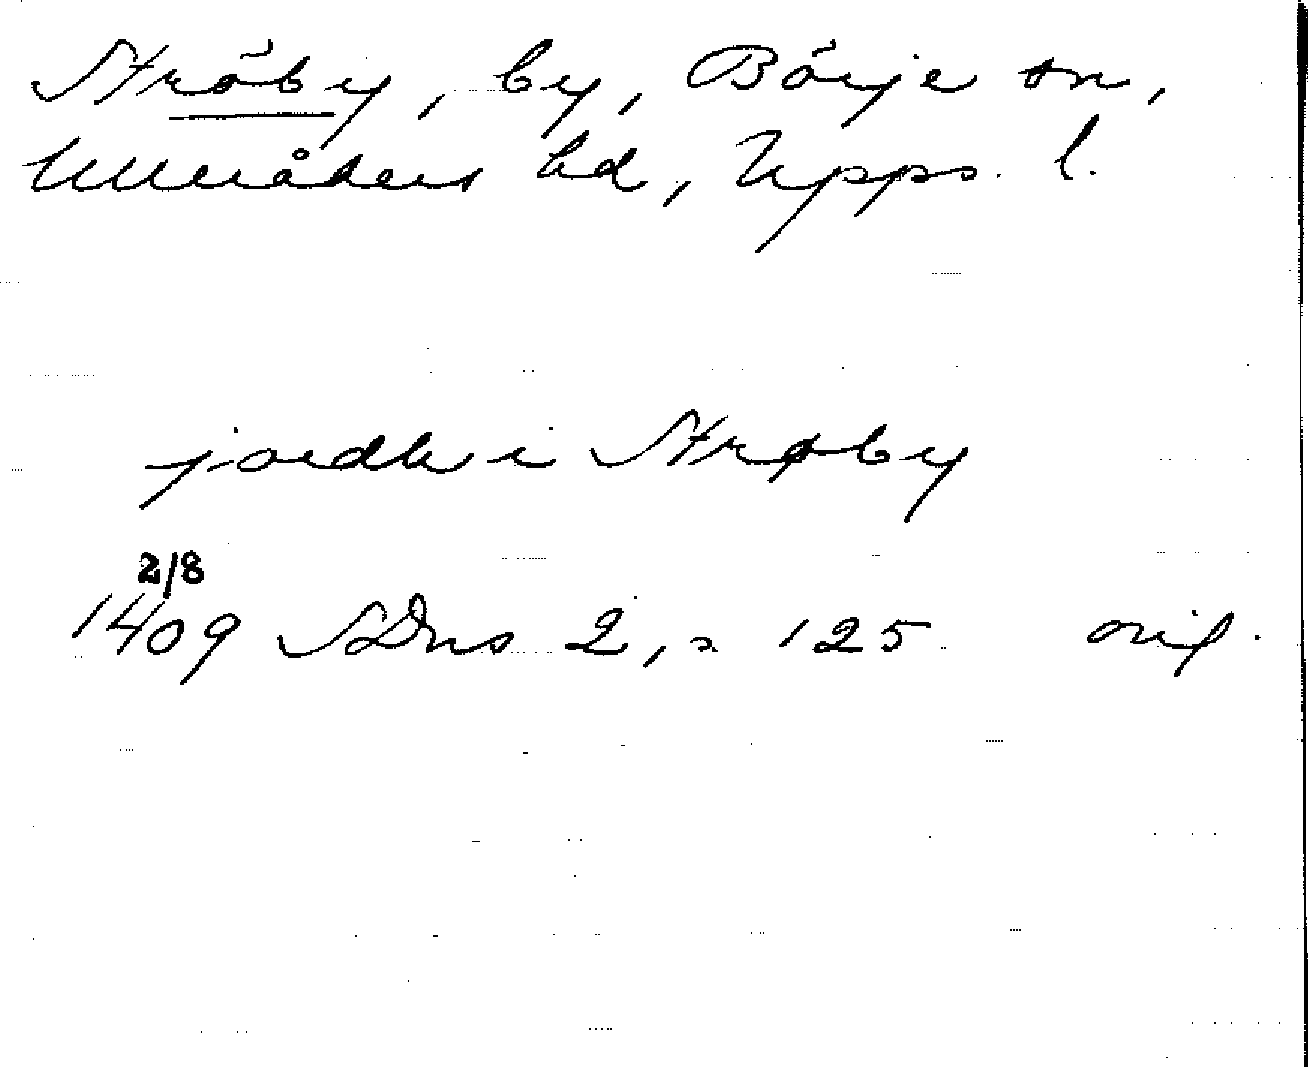 Ströby, by, Börje sn,
Ulleråkers hd, Upps. l.
jordh i Strøby
2/8
1409 SDns 2, s 125 orig.